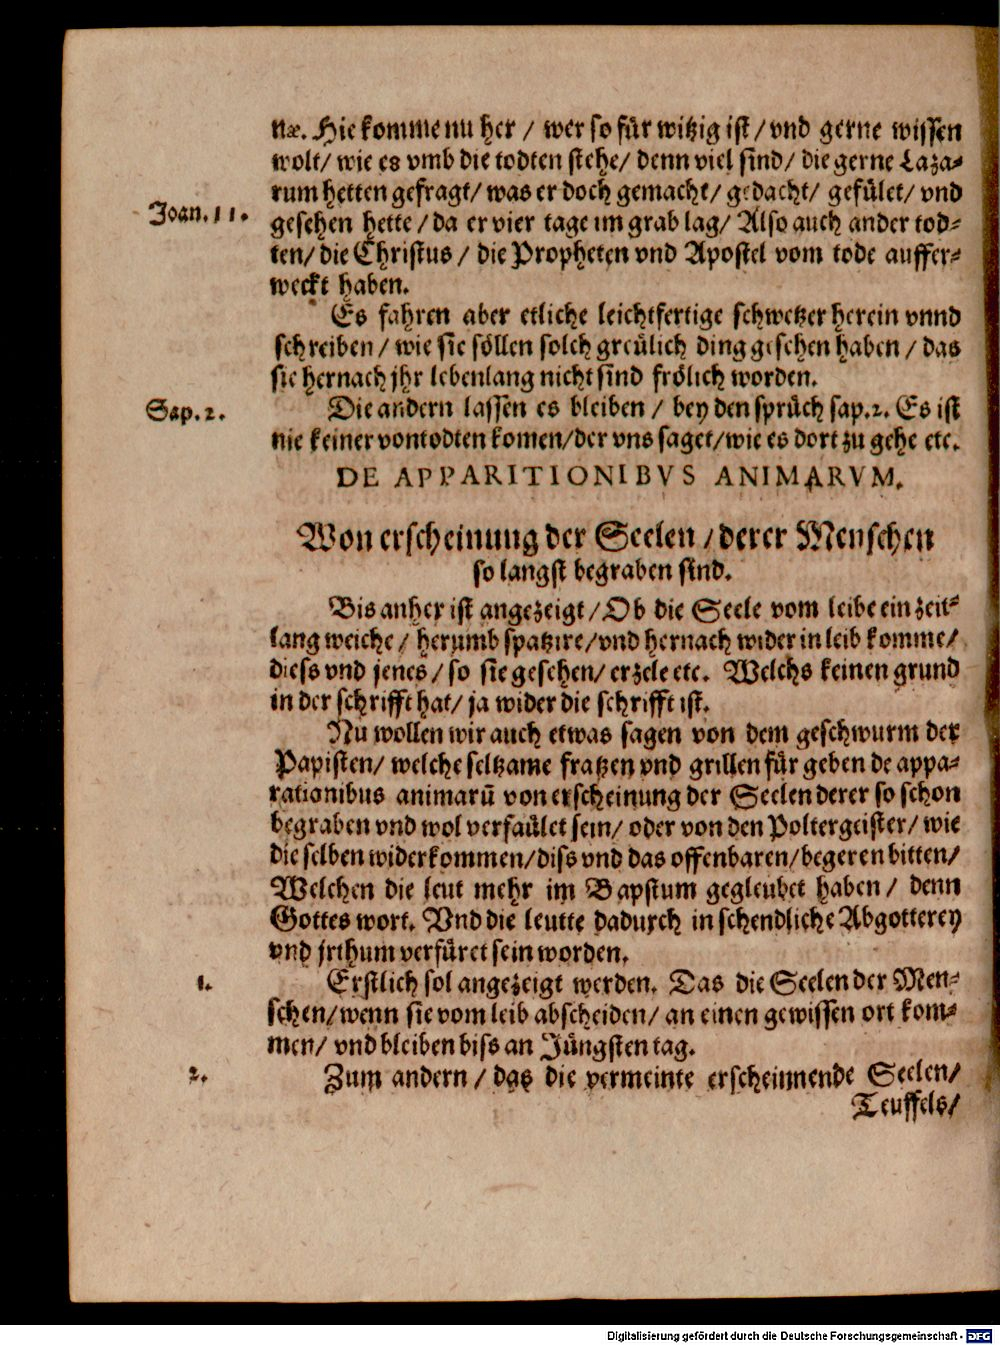 næ. Hie komme nu her / wer so für witzig ist / vnd gerne wissen
wolt / wie es vmb die todten stehe / denn viel sind / die gerne Laza⸗
rum hetten gefragt / was er doch gemacht / gedacht / gefület / vnd
Joan. 11.
gesehen hette / da er vier tage im grab lag / Also auch ander tod⸗
ten / die Christus / die Propheten vnd Apostel vom tode auffer⸗
weckt haben.
Es fahren aber etliche leichtfertige schwetzer herein vnnd
schreiben / wie sie söllen solch greülich ding gesehen haben / das
sie hernach jhr lebenlang nicht sind frölich worden.
Sap. 2.
Die andern lassen es bleiben / bey den sprüch sap. 2. Es ist
nie keiner von todten komen / der vns saget / wie es dort zu gehe etc.
DE APPARITIONIBVS ANIMARVM.
Won erscheinung der Seelen / derer Menschen
so langst begraben sind.
Bis anher ist angezeigt / Ob die Seele vom leibe ein zeit⸗
lang weiche / herumb spatzire / vnd hernach wider in leib komme /
diess vnd jenes / so sie gesehen / erzele etc. Welchs keinen grund
in der schrifft hat / ja wider die schrifft ist.
Nu wollen wir auch etwas sagen von dem geschwurm der
Papisten / welche seltzame fratzen vnd grillen für geben de appa⸗
rationibus animarū von erscheinung der Seelen derer so schon
begraben vnd wol verfaület sein / oder von den Poltergeister / wie
die selben widerkommen / diss vnd das offenbaren / begeren bitten /
Welchen die leut mehr im Bapstum gegleubet haben / denn
Gottes wort. Vnd die leutte dadurch in schendliche Abgotterey
vnd jrthum verfüret sein worden.
1.
Erstlich sol angezeigt werden. Das die Seelen der Men⸗
schen / wenn sie vom leib abscheiden / an einen gewissen ort kom⸗
men / vnd bleiben biss an Jüngsten tag.
2.
Zum andern / das die vermeinte erscheinnende Seelen /
Teuffels /
Digitalisierung gefördert durch die Deutsche Forschungsgemeinschaft - DFG